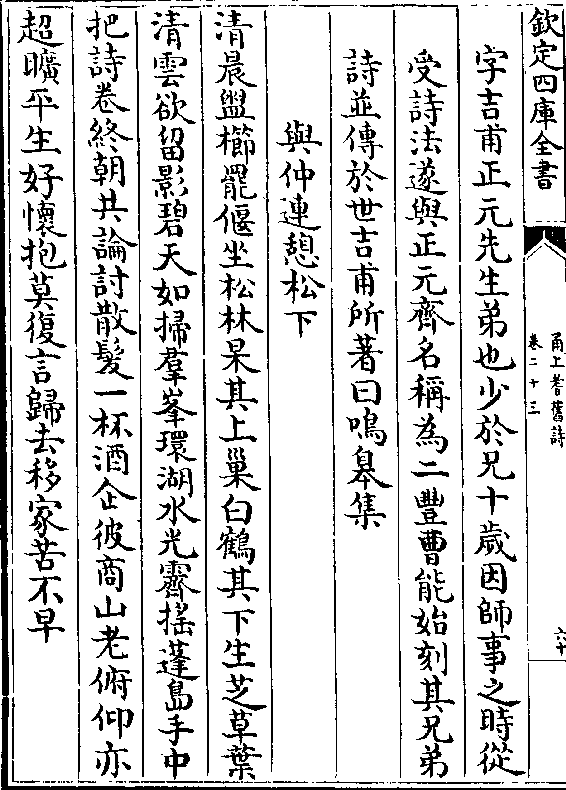 欽定四庫全書
甬上耆舊詩
卷二十三
六十
字吉甫正元先生弟也少於兄十歲因師事之時從
受詩法遂與正元齊名稱為二豐曹能始刻其兄弟
詩並傳於世吉甫所著曰鳴皋集
與仲連憩松下
清晨盥櫛罷偃坐松林杲其上巢白鶴其下生芝草葉
清雲欲留影碧天如掃羣峯環湖水光霽搖蓬島手中
把詩卷終朝共論討散髮一杯酒企彼商山老俯仰亦
超曠平生好懷抱莫復言歸去移家苦不早